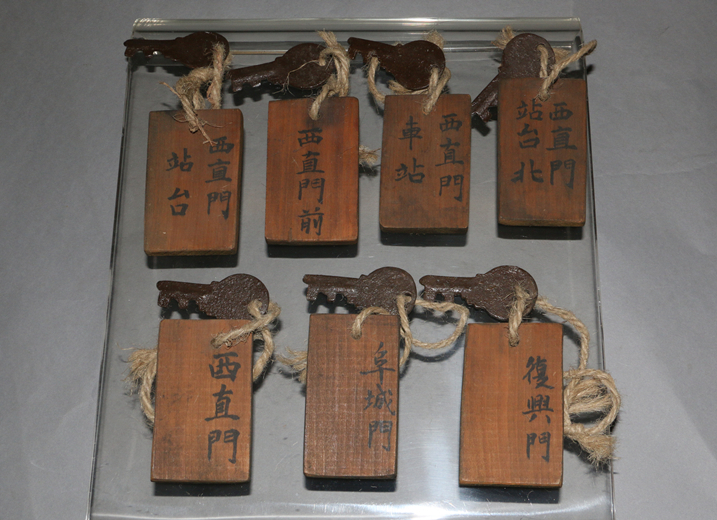 西直門
站台
西直門前
西直門
車站
西直門
站台北
西直門
阜城門
復興門